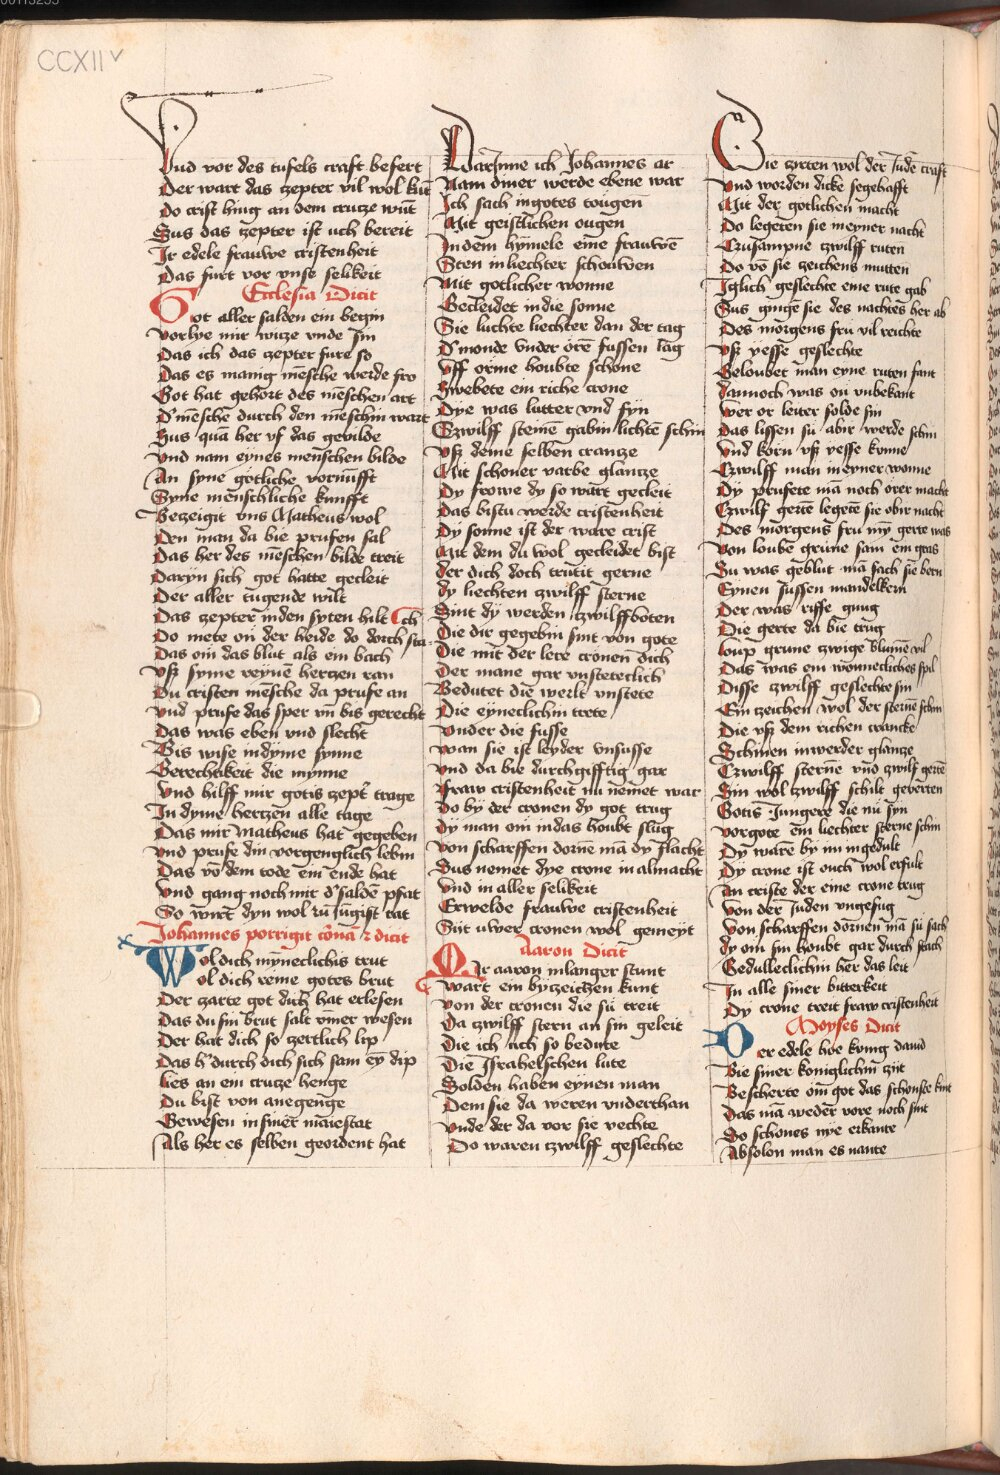 CCXII v
Vnd vor des tufels craft befert
Der wart das zepter vil wol kūt
Do crist hing an dem crutze wūt
Sus das zepter ist uch bereit
Ir edele frauwe cristenheit
Das furt vor vnse selikeit
Ecclesia Dicit
Got aller salden ein begin
vorlye mir witze vnde sin
Das ich das zepter fure so
Das es manig mēsche werde fro
Got hat gehort des mēschen art
D' mēsche durch den mēschin wart
Sus quā her vf das gevilde
Vnd nam eynes menschen bilde
An syne gotliche vornūfft
Syne menschliche kunfft
Betzeigit vns Matheus wol
Den man da bie prufen sal
Das her des mēschen bilde treit
Daryn sich got hatte gecleit
Der aller tugende wilt
Das zepter in den syten hilt Ich
Do mete on der heide do dorch sta-
Das om das blut als ein bach
vsz syme reynē hertzen ran
Du cristen mēsche da prufe an
vnd prufe das sper vn̄ bis gerecht
Das was eben vnd slecht
Bis wise in dyme synne
Gerechtikeit die mynne
Vnd hilff mir gotis zept' trage
In dyme hertzen alle tage
Das mir Matheus hat gegeben
vnd prufe din vorgenglich lebin
Das vō dem tode ein ende hat
Vnd gang noch mir d' saldē pfat
So wirt dyn wol zu iūgist rat
Johannes porrigit corōnā & dicit
Wol dich mȳneclichis trut
Wol dich reine gotes brut
Der zarte got dich hat erlesen
Das du sin brut salt vmer wesen
Der hat dich so zertlich lip
Das h' durch dich sich sam ey dip
lies an ein crutze henge
Du bist von anegenge
Gewesen in siner maiestat
Als her es selben geordent hat
Dar Inne ich Johannes ar
Nam diner werde ebene war
Ich sach in gotes tougen
Mit geistlichen ougen
In dem hymele eine frauwē
Sten in liechter schouwen
Mit gotlicher wonne
Becleidet in die sonne
Sie luchte liechter dan der tag
D' monde vnder oren fussen lag
vff orme houbte schone
Swebete ein riche crone
Dye was lutter vnd fyn
Czwilff steine gabin lichtē schin
vsz deme selben crantze
Mit schoner varbe glantze
Dy frowe dy so wart gecleit
Das bistu werde cristenheit
Dy sonne ist der ware crist
Mit dem du wol gecleidet bist
der dich doch trutit gerne
dy liechten zwilff sterne
Sint dy werden zwilffboten
Die dir gegebin sint von gote
Die mit der lere cronen dich
Der mane gar vnsteteclich
Bedutet die werlt vnstete
Die eyneclichin trete
Vnder die fusse
wan sie ist leyder vnsusse
vnd da bie durchgifftig gar
Fraw cristenheit nu nemet war
Do by der cronen dy got trug
Dy man om in das houbt slug
von scharffen dornē mā dy flacht
Sus nemet dye crone in almacht
Vnd in aller selikeit
Erwelde frauwe cristenheit
Sit ulver cronen wol gemeyt
Aaron Dicit
Mir aaron in langer stunt
wart ein bytzeichen kunt
von der cronen die sū treit
Da zwilff stern an sin geleit
Die ich uch so bedute
Die Israhelschen lute
Solden haben eynen man
Dem sie da weren vnderthan
vnde der da vor sie vechte
Do waren tzwilff geslechte
Die zirten wol der Jude craft
vnd worden dicke segehafft
Mit der gotlichen macht
Do legeten sie in eyner nacht
Czusampne tzwilff ruten
Do vō sie zeichens mutten
Iglich geslechte eine rute gab
Sus ginge sie des nachtes her ab
Des morgens fru vil rechte
vsz yesse geslechte
Beloubet man eyne ruten fant
Dannoch was on vnbekant
wer or leiter solde sin
Das lissen sū abir werde schin
Vnd korn vsz yesse konne
Czwilff man in eyner wonne
Dy prufete mā noch orer macht
Czwilf gerte legete sie obir nacht
Des morgens fru mȳ gerte was
von loube grune sam ein gras
Su was geblut mā sach sie bern
Eynen sussen mandelkern
Der was riffe gnug
Die gerte da bie trug
loup grune zwige blumē vil
Das was ein wonnecliches spil
Disse zwilff geslechte sin
Ein zeichen wol der steine schin
Die vsz dem richen crancke
Schinen in werder glantze
Czwilff sterne vnd zwilf gerte
Sin wol zwilff schilt geverten
Gotis Jungere die nu syn
vor gote ein liechter sterne schin
Dy warē by im in gedult
Dy crone ist ouch wol erfult
An criste der eine crone trug
von den Juden vngefug
von scharffen dornen mā sū sach
dy om sin houbt gar durch stach
Gedulleclichin her das leit
In alle siner bitterkeit
Dy crone treit fraw cristenheit
Moyses Dicit
Der edele hoe konig dauid
Bie siner koniglichin zijt
Bescherte om got das schonste kint
Das mā weder vore noch sint
So schones nye erkante
Absolon man es nante